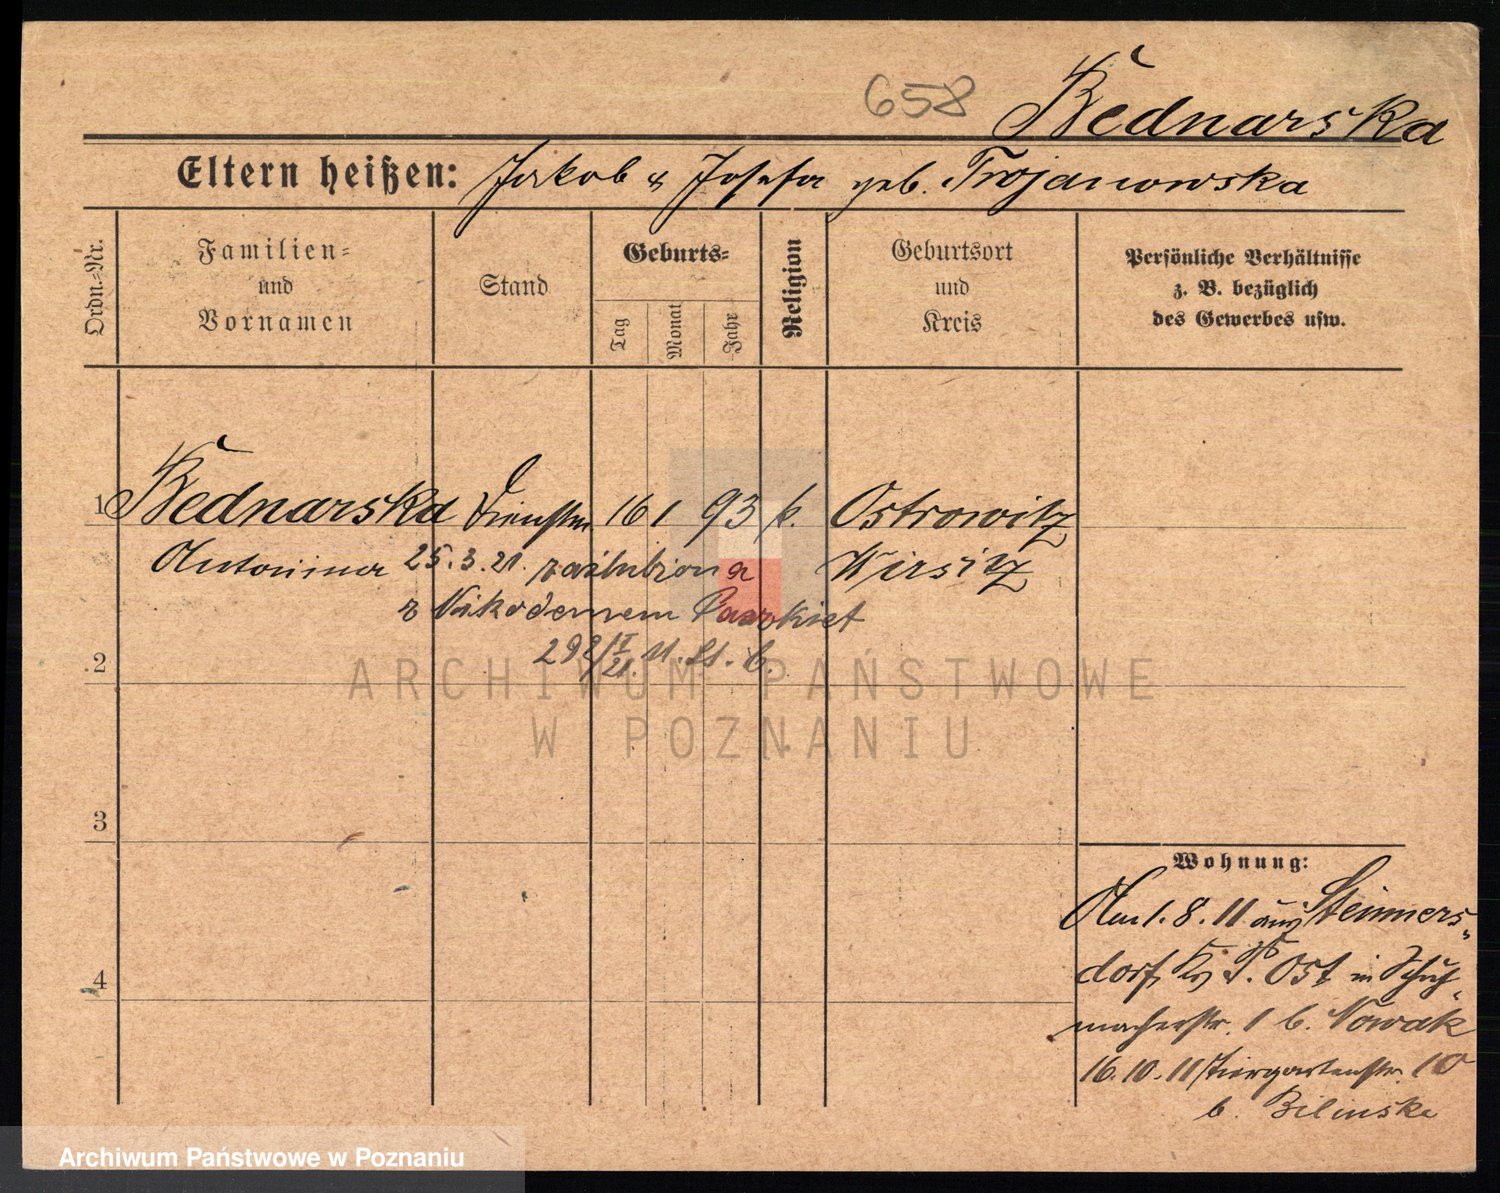 658 Bednarska
Eltern heißen: Jakob & Josefa geb. Trojanowska
Ordn.-Nr.
Familien-
und
Vornamen
Stand
Geburts-
Tag
Monat
Jahr
Religion
Geburtsort
und
Kreis
Persönliche Verhältnisse
z. B. bezüglich
des Gewerbes usw.
1 Bednarska Dienstm. 16 1 93 k. Ostrowitz
Antonina 25.3.21. zaślubiona Wirsitz
z Nikodemem Parzkiet
298/I 21. U. St. C.
2
3
4
Wohnung:
Am 1. 8. 11 aus Steiners-
dorf, Kr P. Ost in Schuh-
macherstr. 1 b. Nowak
16. 10. 11 Tiergartenstr. 10
b. Bilinska
ARCHIWUM PAŃSTWOWE
W POZNANIU
Archiwum Państwowe w Poznaniu